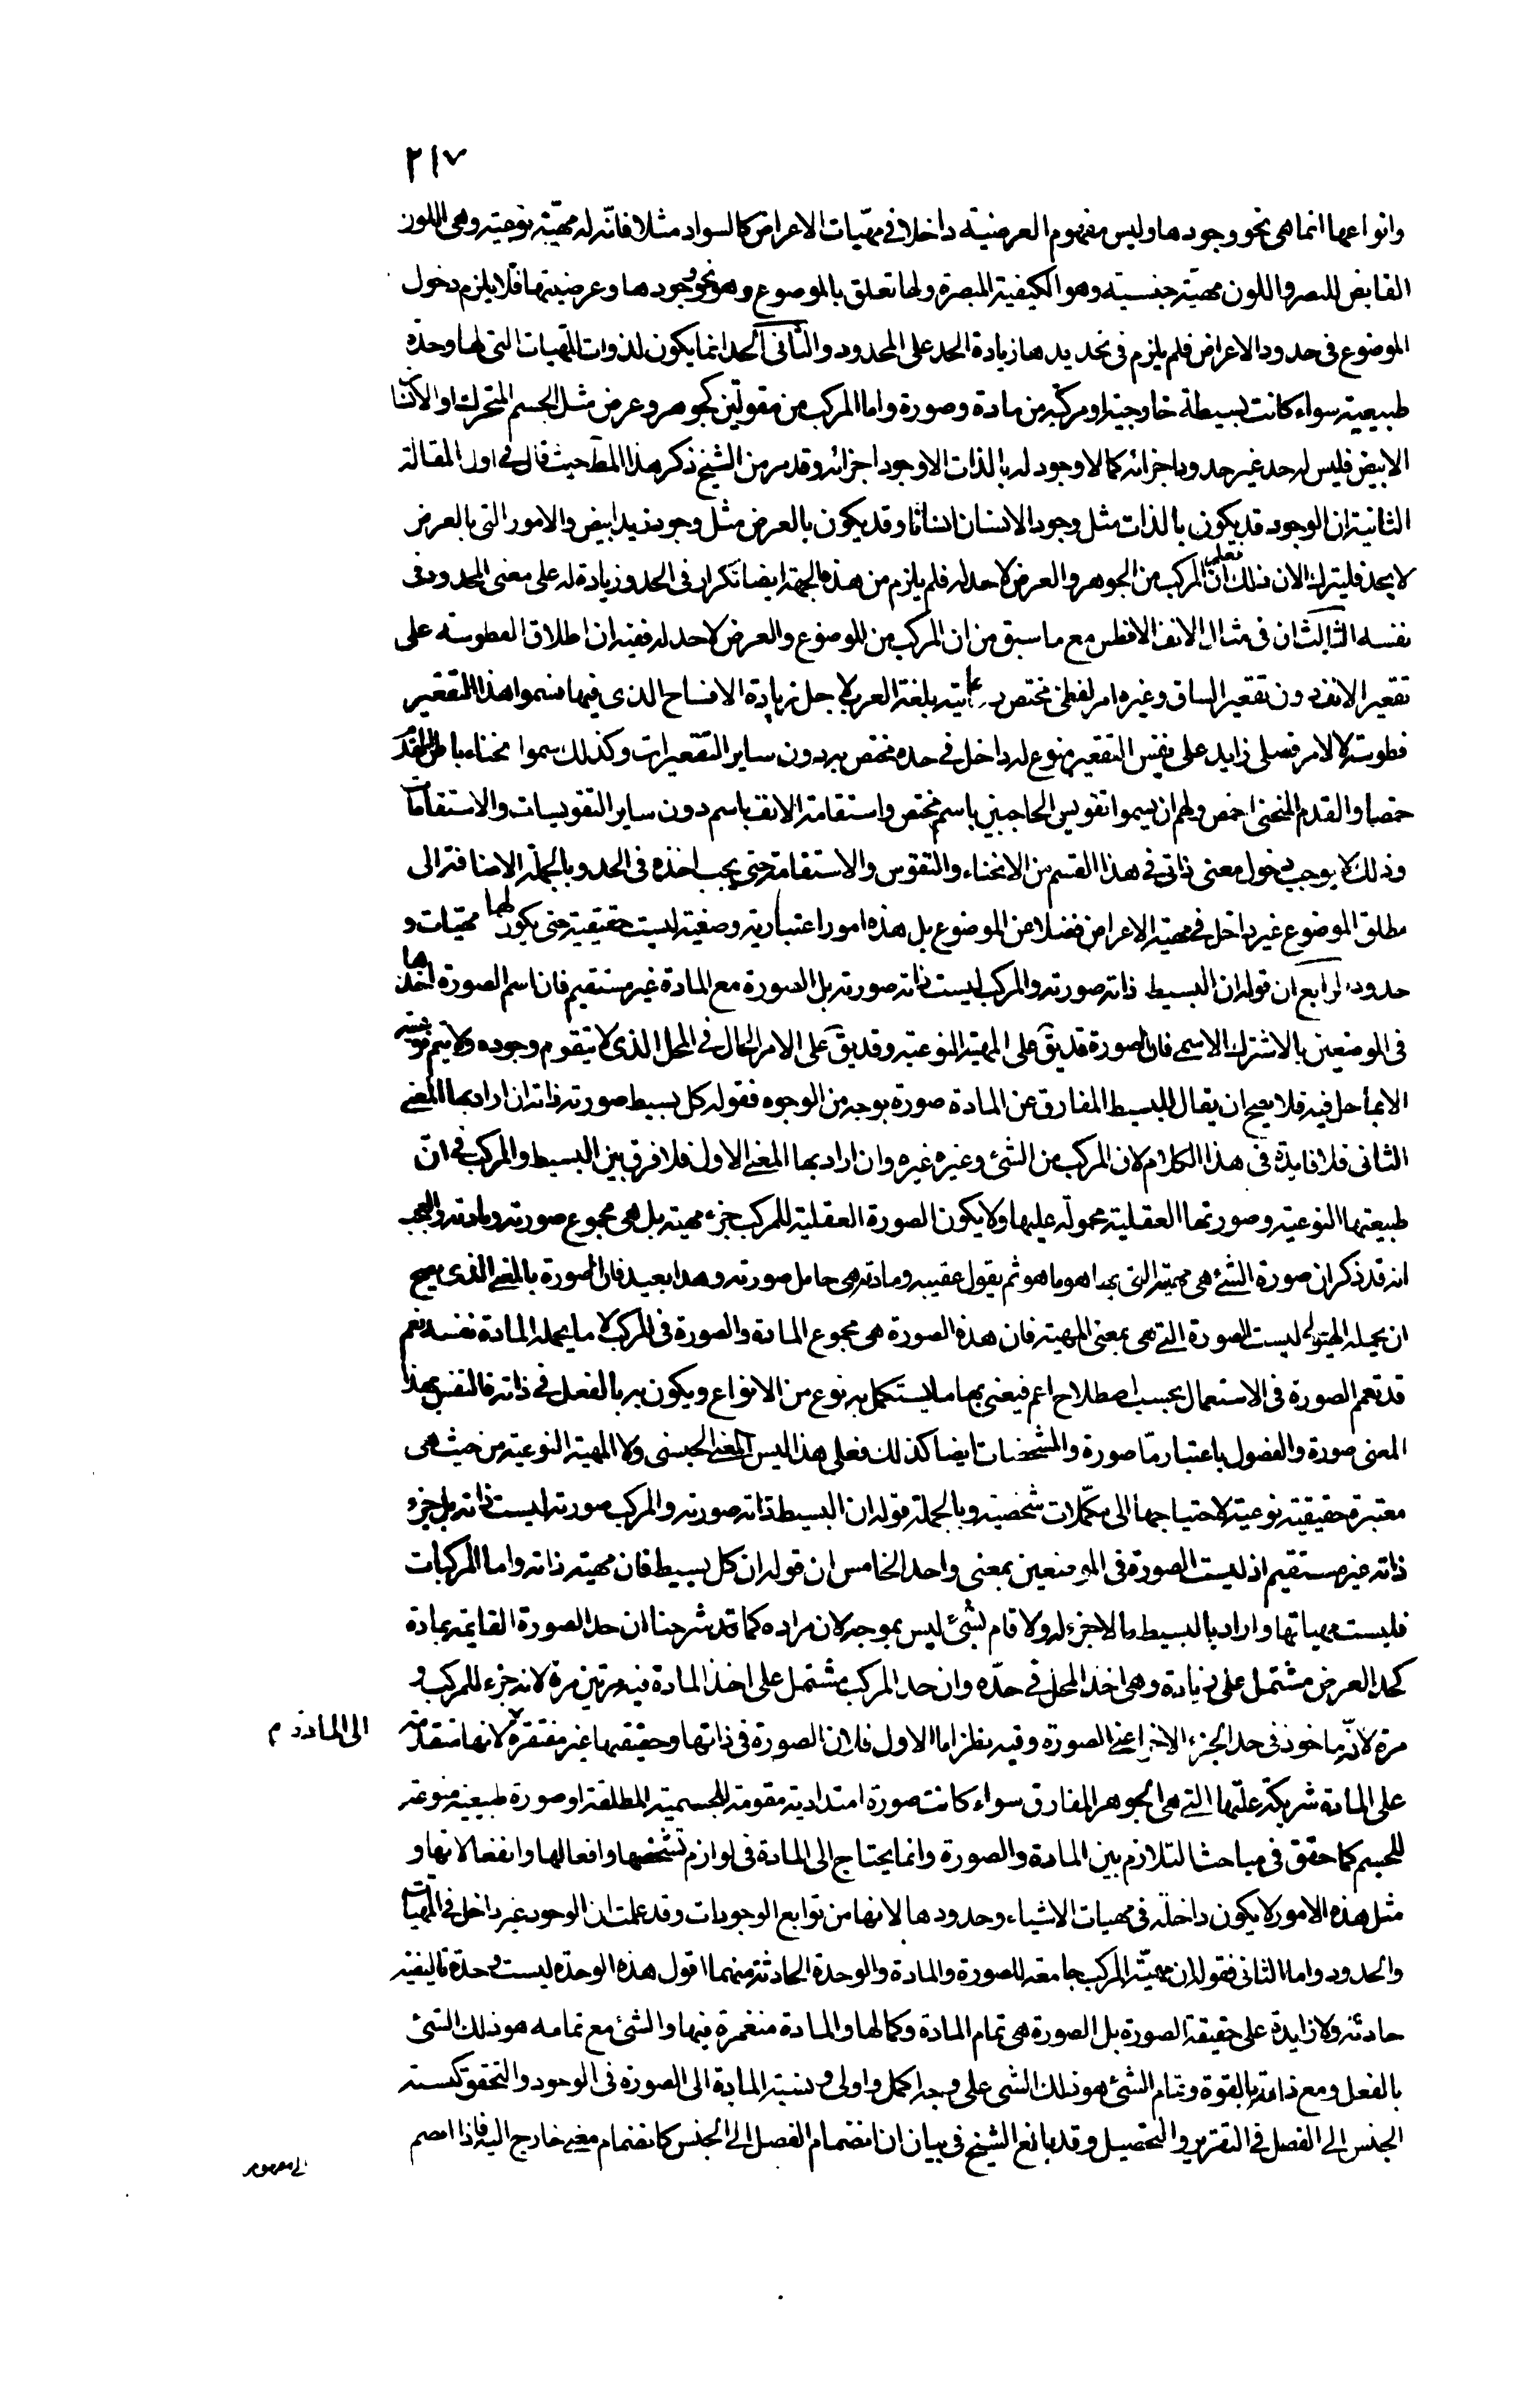 ٢١٧
وانواعها انما هى نحو وجودها وليس مفهوم العرضية داخلا فى مهيّات الاعراض كالسواد مثلا فانّه له مهيّة نوعية وهى اللون
القابض للبصر واللون مهية جنسية وهو الكيفية المبصرة ولها تعلق بالموضوع وهو نحو وجودها وعرضيتها فلا يلزم دخول
الموضوع فى حدود الاعراض فلم يلزم فى تحديدها زيادة الحد على المحدود والثانى ان الحد انما يكون لذوات المهيات التى لها وحدة
طبيعية سواء كانت بسيطة خارجية او مركبة من مادة وصورة واما المركب من مقولتين كجوهر وعرض مثل الجسم المتحرك او الانسان
الابيض فليس له حد غير حدود اجزائه كما لا وجود له بالذات الا وجود اجزائه وقد مر من الشيخ ذكر هذا المط حيث قال فى اول المقالة
الثانية ان الوجود قد يكون بالذات مثل وجود الانسان انسانا وقد يكون بالعرض مثل وجود زيد ابيض والامور التى بالعرض
لا يحد فليترك الان ذلك فعلم ان المركب من الجوهر والعرض لا حد له فلم يلزم من هذه الجهة ايضا تكرار فى الحد وزيادة له على معنى المحدود فى
نفسه الثالث ان فى مثال الانف الافطس مع ما سبق من ان المركب من الموضوع والعرض لا حد له ففيه ان اطلاق الفطوسة على
تقعير الانف دون تقعير الساق وغيره امر لفظى مختص بلغة العرب لاجل زيادة الافساح الذى فيها فسموا هذا التقعير
فطوسة لا لامر فصلى زايد على نفس التقعير منوع له داخل فى حده مختص به دون ساير التقعيرات وكذلك سموا انحناء باطن القدم
خمصا والقدم المنحنى اخمص ولهم ان يسموا تقويس الحاجبين باسم مختص واستقامة الانف باسم دون ساير التقويسات والاستقامات
وذلك لا يوجب دخول معنى ذاتى فى هذا القسم من الانحناء والتقوس والاستقامة حتى يجب اخذه فى الحد وبالجملة الاضافة الى
مطلق الموضوع غير داخل فى مهية الاعراض فضلا عن الموضوع بل هذه امور اعتبارية وصفية ليست حقيقية حتى يكون لها مهيات و
حدود الرابع ان قوله ان البسيط ذاته صورته والمركب ليست ذاته صورته بل الصورة مع المادة غير مستقيم فان اسم الصورة اخذها
فى الموضعين بالاشتراك الاسمى فان الصورة قد يق على المهية النوعية وقد يق على الامر الحال فى المحل الذى لا يتقوم وجوده ولا يتم نوعيته
الا بما حل فيه فلا يصح ان يقال للبسيط المفارق عن المادة صورة بوجه من الوجوه فقوله كل بسيط صورته ذاته ان اراد بها المعنى
الثانى فلا فايدة فى هذا الكلام لان المركب من الشئ وغيره غيره وان اراد بها المعنى الاول فلا فرق بين البسيط والمركب فى انّ
طبيعتها النوعية وصورتها العقلية محمولة عليها ولا يكون الصورة العقلية للمركب جزء مهية بل هى مجموع صورته ومادته والعجب
انه قد ذكر ان صورة الشئ هى مهيته التى بها هو ما هو ثم يقول عقيبه ومادته هى حامل صورته وهذا بعيد فان الصورة بالمعنى الذى يصح
ان يحمله الهيولى ليست الصورة التى هى بمعنى المهية فان هذه الصورة هى مجموع المادة والصورة فى المركب لا ما يحمله المادة نفسه نعم
قد تعم الصورة فى الاستعمال بحسب اصطلاح اعم فيعنى بها ما يستكمل به نوع من الانواع ويكون به بالفعل فى ذاته فالنفس بهذا
المعنى صورة والفصول باعتبار مّا صورة والمشخصات ايضا كذلك فعلى هذا ليس المعنى الجنسى ولا المهية النوعية من حيث هى
معتبرة حقيقية نوعية لاحتياجها الى مكملات شخصية وبالجملة قوله ان البسيط ذاته صورته والمركب صورته ليست ذاته بل جزء
ذاته غير مستقيم اذ ليست الصورة فى الموضعين بمعنى واحد الخامس ان قوله ان كل بسيط فان مهية ذاته واما المركبات
فليست مهياتها واراد بالبسيط ما لا جزء له ولا قام بشئ ليس بموجه لان مراده كما قد شرحنا ان حد الصورة القايمة بمادة
كحد العرض مشتمل على زيادة وهى اخذ المحل فى حدّه وان حد المركب مشتمل على اخذ المادة فيه مرتين مرة لانه جزء للمركب و
مرة لانّه ماخوذ فى حد الجزء الاخر اعنى الصورة وفيه نظر اما الاول فلان الصورة فى ذاتها وحقيقتها غير مفتقرة لانها متقدمة
الى المادة م
على المادة شريكة علّتها التى هى الجوهر المفارق سواء كانت صورة امتدادية مقومة للجسمية المطلقة او صورة طبيعية منوعة
للجسم كما حقق فى مباحث التلازم بين المادة والصورة وانما يحتاج الى المادة فى لوازم تشخصها وافعالها وانفعالاتها و
مثل هذه الامور لا يكون داخلة فى مهيات الاشياء وحدودها لانها من توابع الوجودات وقد علمت ان الوجود غير داخل فى المهيات
والحدود واما الثانى فقوله ان مهيّة المركب جامعة للصورة والمادة والوحدة الحادثة منهما اقول هذه الوحدة ليست وحدة تاليفية
حادثة ولا زايدة على حقيقة الصورة بل الصورة هى تمام المادة وكمالها والمادة منغمرة فيها والشئ مع تمامه هو ذلك الشئ
بالفعل ومع ذاته بالقوة وتمام الشئ هو ذلك الشى على وجه اكمل واولى ونسبة المادة الى الصورة فى الوجود والتحقق كنسبة
الجنس الى الفصل فى التقرير والتحصيل وقد بالغ الشيخ فى بيان ان انضمام الفصل الى الجنس كانضمام معنى خارج اليه فاذا انضم
الى مفهوم